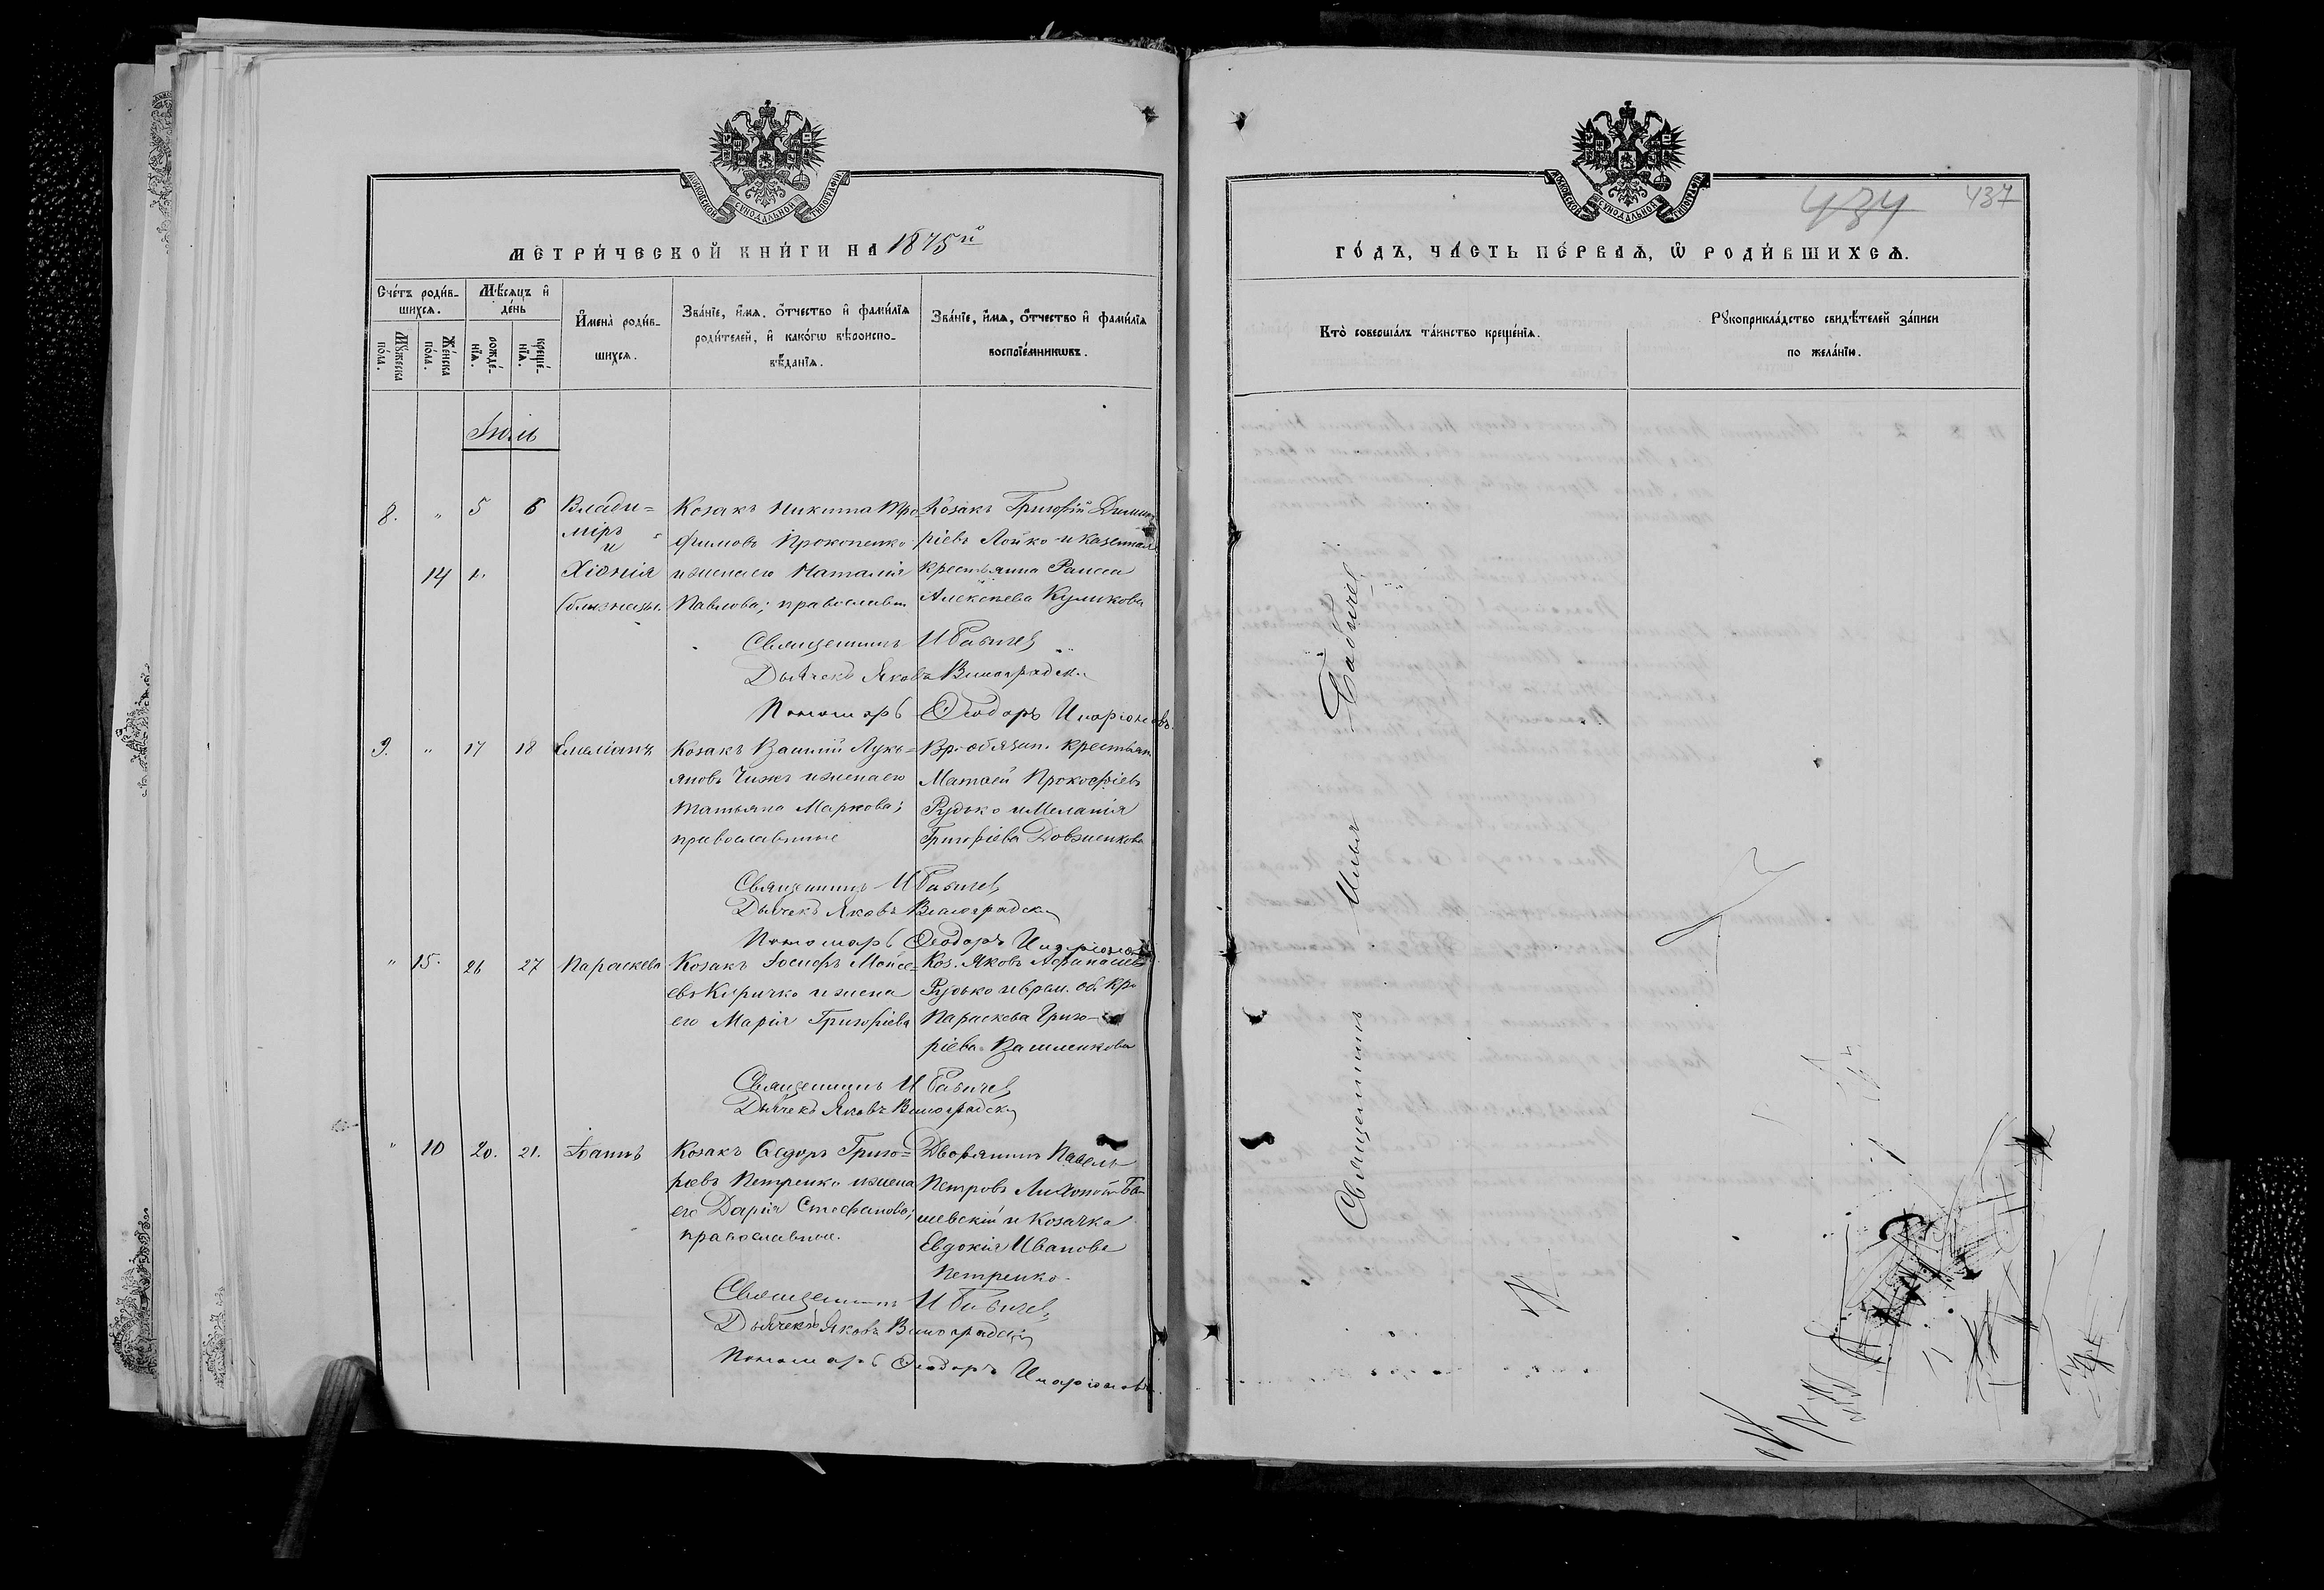 МОСКОВСКОЙ СѴНОДАЛЬНОЙ ТИПОГРАФІИ
МЕТРИ́ЧЕСКОЙ КНИ́ГИ НА 1875й
Сче́тъ роди́в-
шихсѧ.
Мꙋ́жеска
по́ла.
Же́нска
по́ла.
Мѣ́сѧцъ и҆
де́нь
рожде́-
нїѧ.
креще́-
нїѧ.
И҆мена̀ роди́в-
шихсѧ.
Зва́нїе, и҆́мѧ, о҆́тчество и҆ фами́лїѧ
роди́телей, и҆ како́гѡ вѣроиспо-
вѣ́данїѧ.
Зва́нїе, и҆́мѧ, о҆́тчество и҆ фами́лїѧ
воспрїе́мникѡвъ.
Іюль
8. " 5 6 Влади=
міръ
и
14 Хіонія
(близнецы.
Козакъ Никита Тро-
фимовъ Прокопенко
и жена его Наталія
Павлова; православн
Козакъ Григорій Димит
ріевъ Лойко и казенная
крестьянка Раиса
Алексѣева Куликова
Священникъ И Бабичев
Дьячекъ Яковъ Виноградски
Пономарь Ѳеодоръ Иларіоновъ
9. " 17 18 Емеліанъ
Козакъ Василій Лукь=
яновъ Чижъ и жена его
Татьяна Маркова;
православные
Вр. обязан. крестьян
Матвей Прокофіевъ
Рудько и Меланія
Григоріева Довженкова
Священникъ И Бабичев
Дьячекъ Яковъ Виноградски
Пономарь Ѳеодоръ Иларіоновъ
" 15. 26 27 Параскева
Козакъ Іосифъ Мойсе=
евъ Киричко и жена
его Марія Григоріева
Коз. Яковъ Афанасіев
Рудько и врем. об. кр.
Параскева Григо-
ріева Василенкова
Священникъ И Бабичев
Дьячекъ Яковъ Виноградски
" 10 20. 21. Іоаннъ
Козакъ Ѳедоръ Григо=
ріевъ Петренко и жена
его Дарія Стефанова;
православные.
Дворянинъ Павелъ
Петровъ
и Козачка
Евдокія Иванова
Петренко
Священникъ И Бабичев
Дьячекъ Яковъ Виноградски
Пономарь Ѳеодоръ Иларіоновъ
МОСКОВСКОЙ СѴНОДАЛЬНОЙ ТИПОГРАФІИ
434 437
ГО́ДЪ, ЧА́СТЬ ПЕ́РВАѦ, Ѡ҆ РОДИ́ВШИХСѦ.
Кто̀ соверша́лъ та́инство креще́нїѧ.
Рꙋкоприкла́дство свидѣ́телей за́писи
по жела́нїю.
Священникъ Илья Бабичев